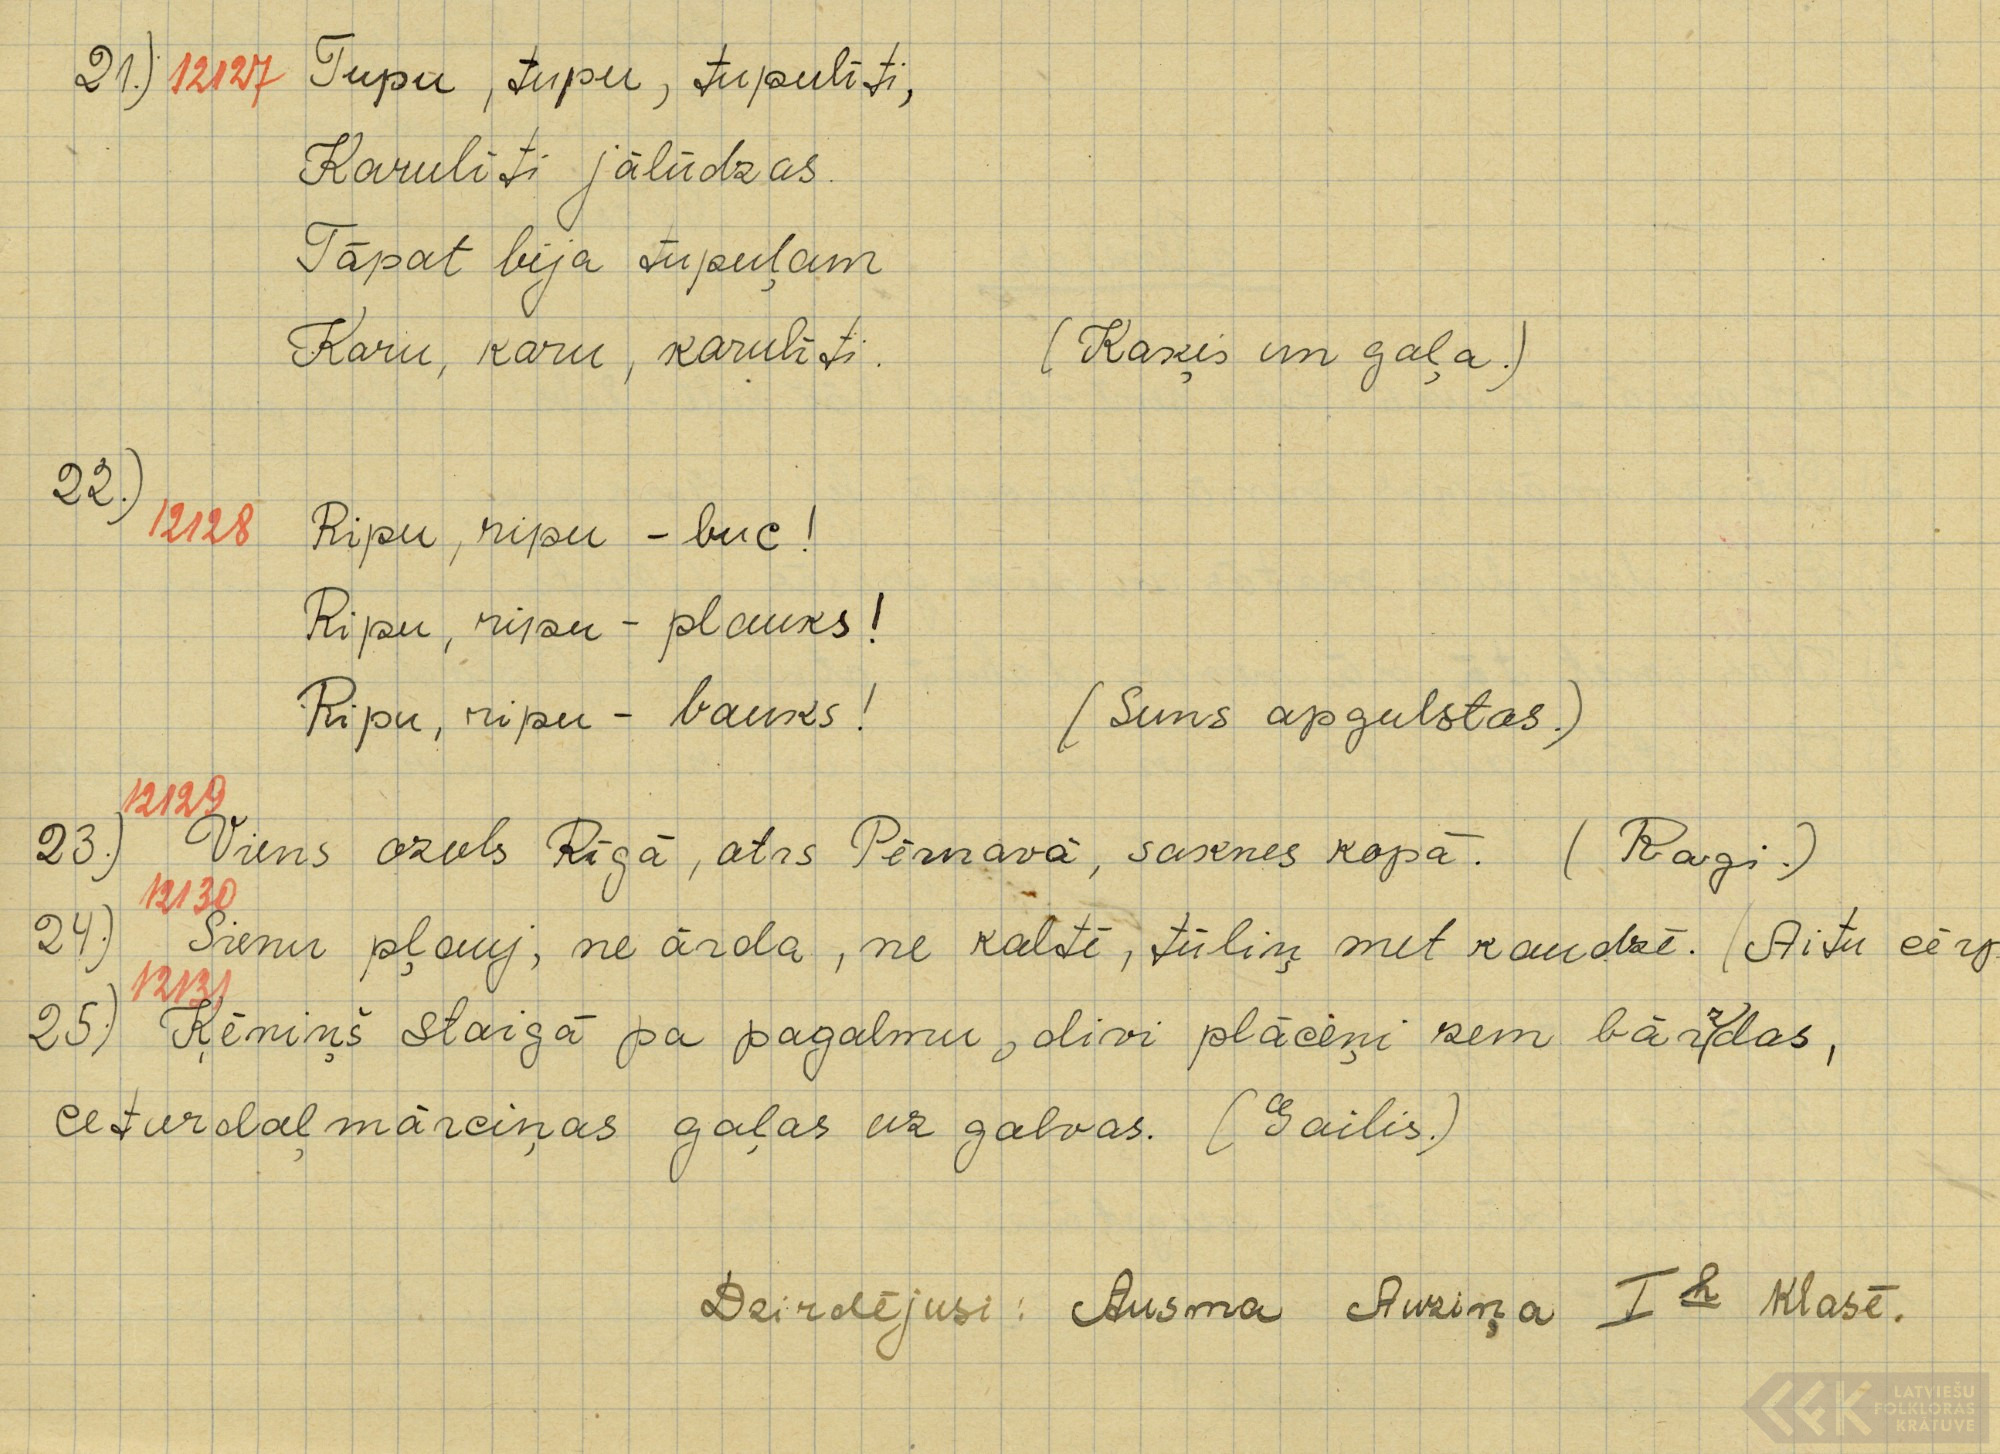 21.) 12127 Tupu, tupu, tupulīti,
Karulīti jālūdzas.
Tāpat bija tupuļam
Karu, karu, karulīti. (Kaķis un gaļa.)
22.)
12128 Ripu, ripu - buc!
Ripu, ripu - plauks!
Ripu, ripu - bauks! (Suns apgulstas.)
12129
23.) Viens ozols Rīgā, otrs Pērnavā, saknes kopā. (Ragi.)
12130
24.) Sienu pļauj, ne ārda, ne kaltē, tūliņ met kaudzē. (Aitu cērp
12131
25.) Ķēniņš staigā pa pagalmu, divi plāceņi zem bārzdas,
ceturdaļmārciņas gaļas uz galvas. (Gailis.)
Dzirdējusi: Ausma Auziņa I h klasē.
LATVIEŠU
FOLKLORAS
KRĀTUVE